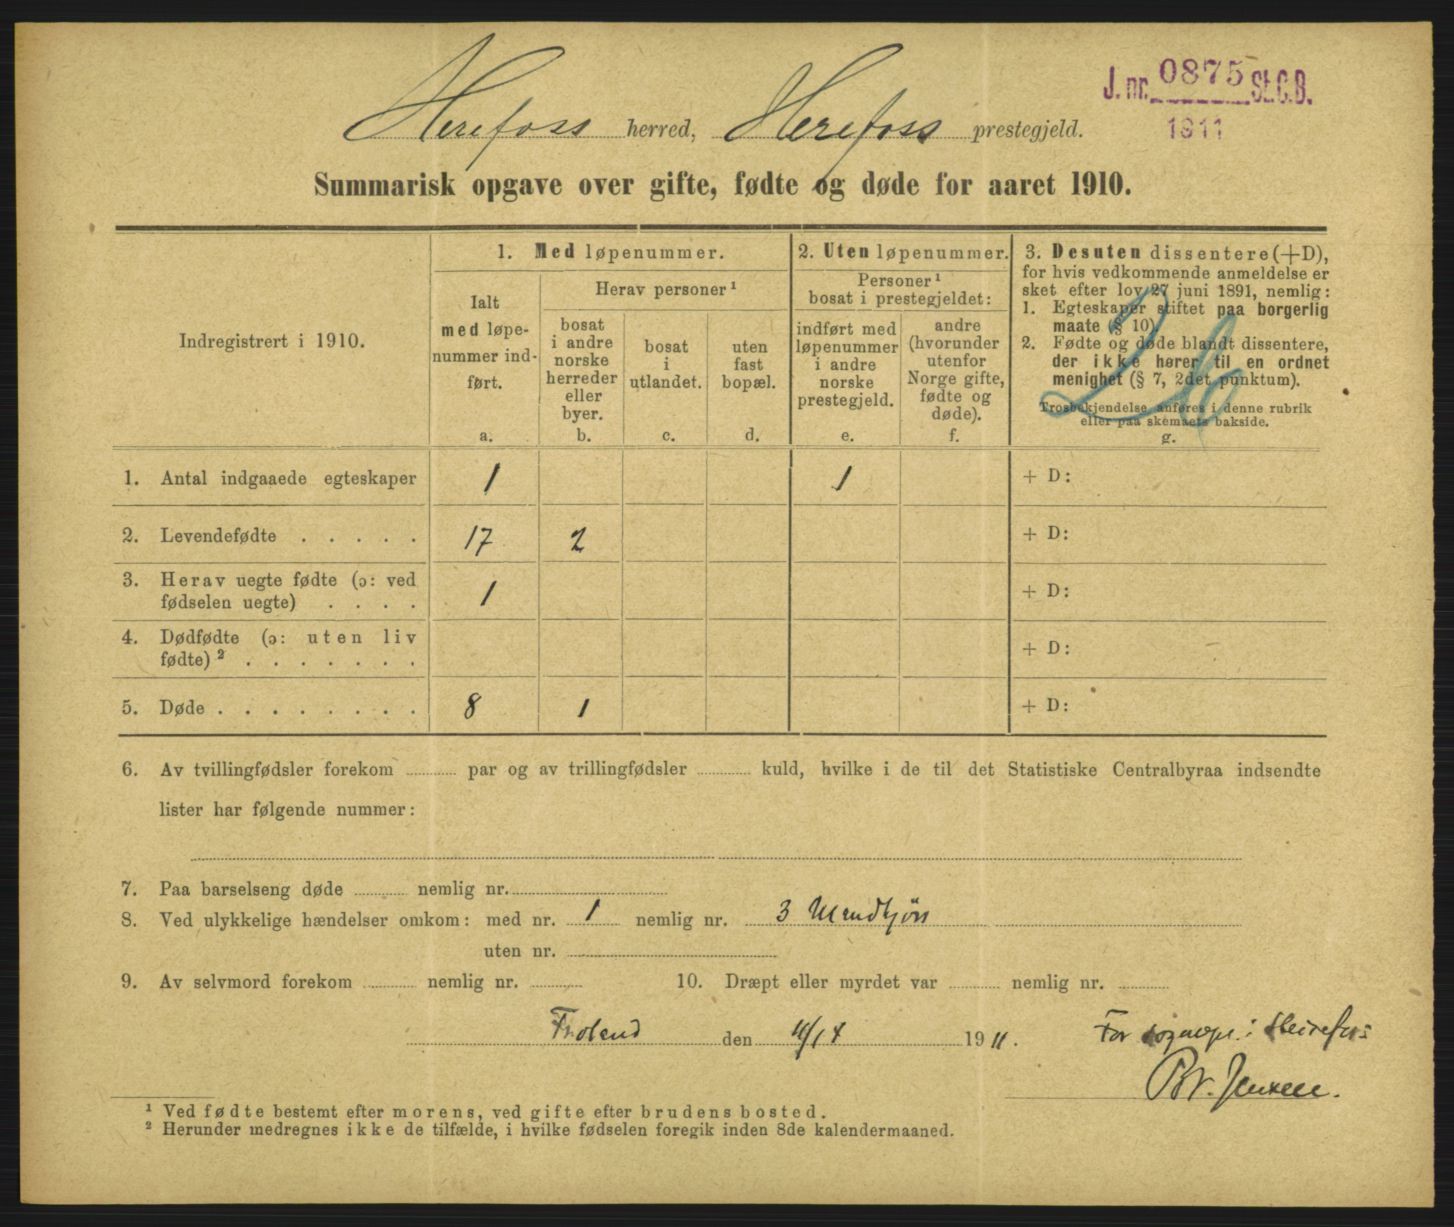 J. nr. 0875 St.C.B.
1911
Herefoss herred, Herefoss prestegjeld.
Summarisk opgave over gifte, fødte og døde for aaret 1910.
Indregistrert i 1910.
1. Med løpenummer.
Ialt
med løpe-
nummer ind-
ført.
a.
Herav personer ¹
bosat
i andre
norske
herreder
eller
byer.
b.
bosat
i
utlandet.
c.
uten
fast
bopæl.
d.
2. Uten løpenummer.
Personer ¹
bosat i prestegjeldet:
indført med
løpenummer
i andre
norske
prestegjeld.
e.
andre
(hvorunder
utenfor
Norge gifte,
fødte og
døde).
f.
3. Desuten dissentere (+D),
for hvis vedkommende anmeldelse er
sket efter lov 27 juni 1891, nemlig:
1. Egteskaper stiftet paa borgerlig
maate (§ 10).
2. Fødte og døde blandt dissentere,
der ikke hører til en ordnet
menighet (§ 7, 2det punktum).
Trosbekjendelse anføres i denne rubrik
eller paa skemaets bakside.
g.
1. Antal indgaaede egteskaper 1 1 + D:
2. Levendefødte . . . . . 17 2 + D:
3. Herav uegte fødte (ɔ: ved
fødselen uegte) . . . . 1 + D:
4. Dødfødte (ɔ: uten liv
fødte) ² . . . . . . . + D:
5. Døde . . . . . . . . 8 1 + D:
6. Av tvillingfødsler forekom par og av trillingfødsler kuld, hvilke i de til det Statistiske Centralbyraa indsendte
lister har følgende nummer:
7. Paa barselseng døde nemlig nr.
8. Ved ulykkelige hændelser omkom: med nr. 1 nemlig nr. 3 Mandkjøn
uten nr.
9. Av selvmord forekom nemlig nr. 10. Dræpt eller myrdet var nemlig nr.
Froland den 1911. For sognepr. i Herefoss
Br. Jensen.
¹ Ved fødte bestemt efter morens, ved gifte efter brudens bosted.
² Herunder medregnes ikke de tilfælde, i hvilke fødselen foregik inden 8de kalendermaaned.